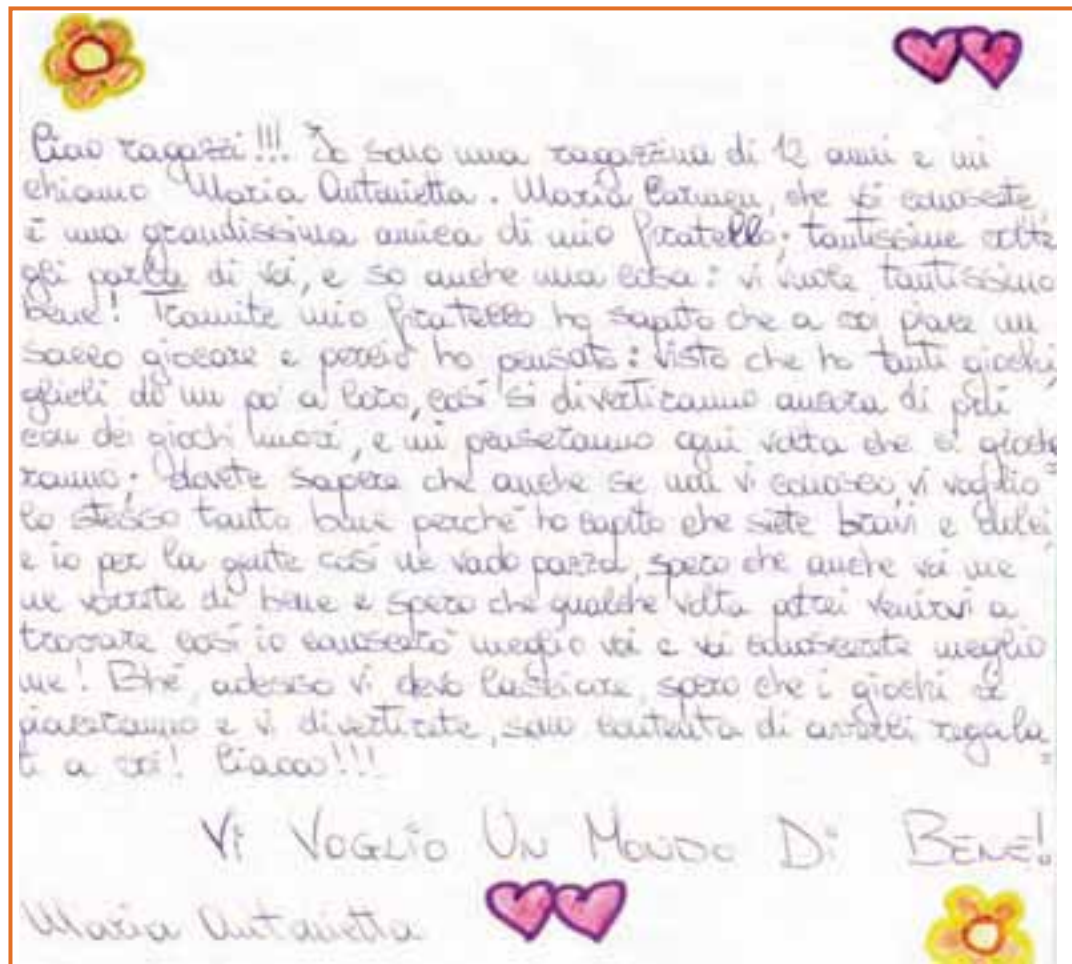 Ciao ragazzi!!! Io sono una ragazzina di 12 anni e mi
chiamo Maria Antonietta. Maria Carmen, che voi conoscete,
è una grandissima amica di mio fratello; tantissime volte
gli parla di voi, e so anche una cosa: vi vuole tantissimo
bene! Tramite mio fratello ho saputo che a voi piace un
sacco giocare e perciò ho pensato: visto che ho tanti giochi,
glieli dò un po' a loro, così si divertiranno ancora di più
con dei giochi nuovi, e mi penseranno ogni volta che ci gioche
ranno; dovete sapere che anche se non vi conosco, vi voglio
lo stesso tanto bene perché ho saputo che siete bravi e dolci,
e io per la gente così ne vado pazza, spero che anche voi me
ne vorrete di bene e spero che qualche volta potrei venirvi a
trovare così io conoscerò meglio voi e voi conoscerete meglio
me! Bhé, adesso vi devo lasciare, spero che i giochi vi
piaceranno e vi divertirete, sono contenta di averli regala=
ti a voi! Ciaooo!!!
Vi VOGLiO UN MONDO Di BENE!
Maria Antonietta